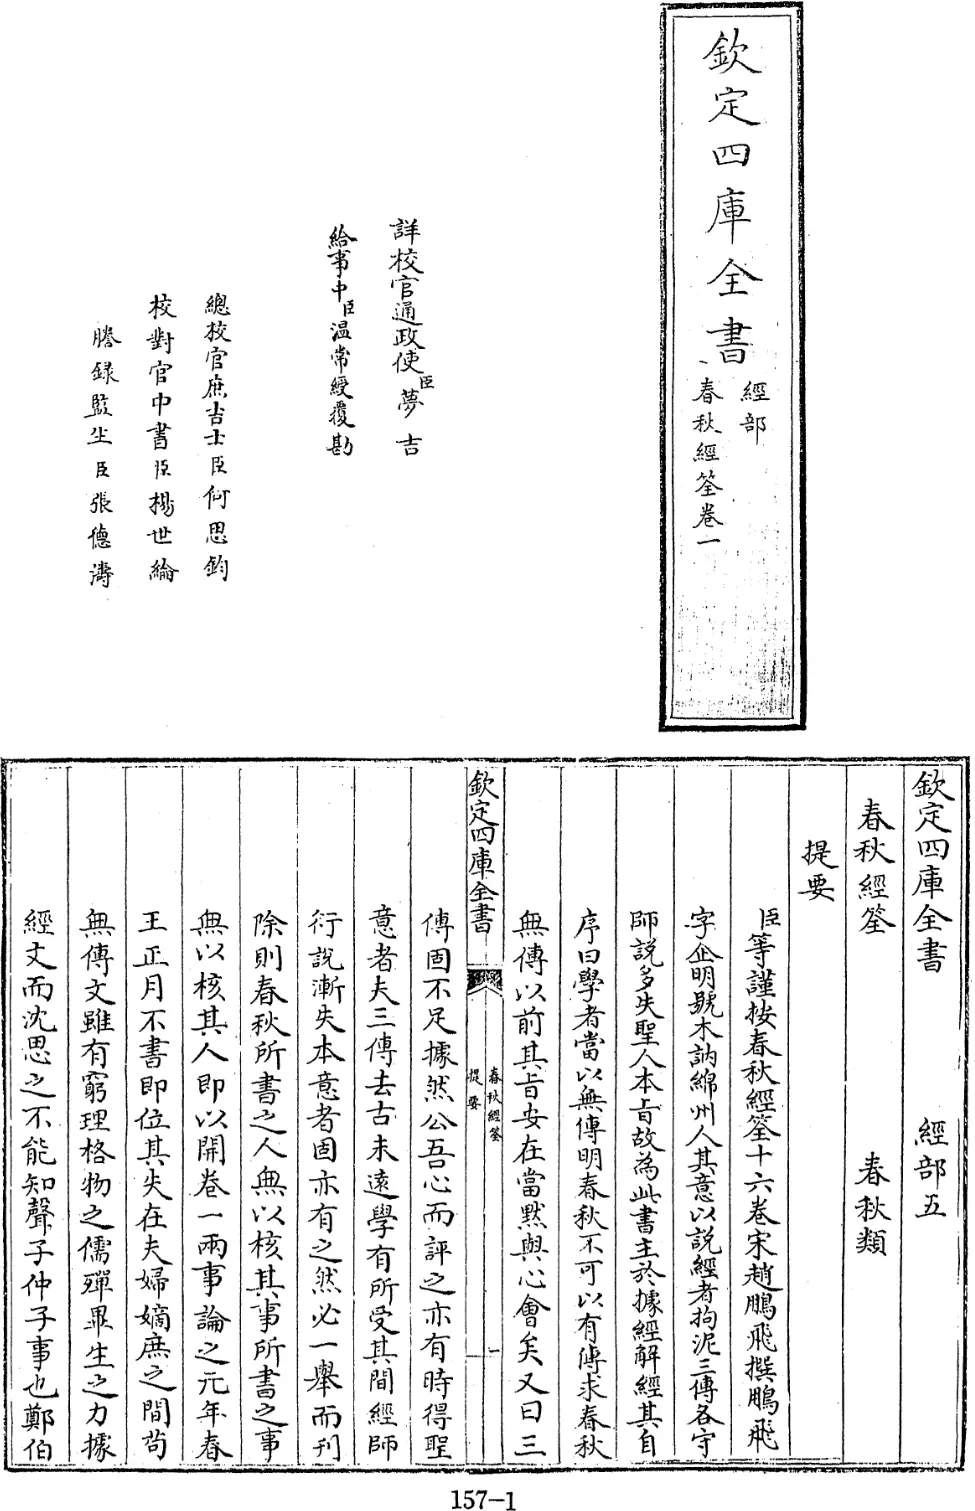 欽定四庫全書
經部
春秋經筌卷一
詳校官通政使臣夢吉
給事中臣温常綬覆勘
總校官庶吉士臣何思鈞
校對官中書臣楊世綸
謄錄監生臣張德濤
欽定四庫全書 經部五
春秋經筌 春秋類
提要
臣等謹按春秋經筌十六卷宋趙鵬飛撰鵬飛
字企明號木訥綿州人其意以說經者拘泥三傳各守
師說多失聖人本旨故為此書主於據經解經其自
序曰學者當以無傳明春秋不可以有傳求春秋
無傳以前其旨安在當黙與心會矣又曰三
欽定四庫全書
春秋經筌
提要
一
傳固不足據然公吾心而評之亦有時得聖
意者夫三傳去古未遠學有所受其間經師
衍說漸失本意者固亦有之然必一舉而刋
除則春秋所書之人無以核其事所書之事
無以核其人即以開卷一兩事論之元年春
王正月不書即位其失在夫婦嫡庶之間茍
無傳文雖有窮理格物之儒殫畢生之力據
經文而沈思之不能知聲子仲子事也鄭伯
157-1